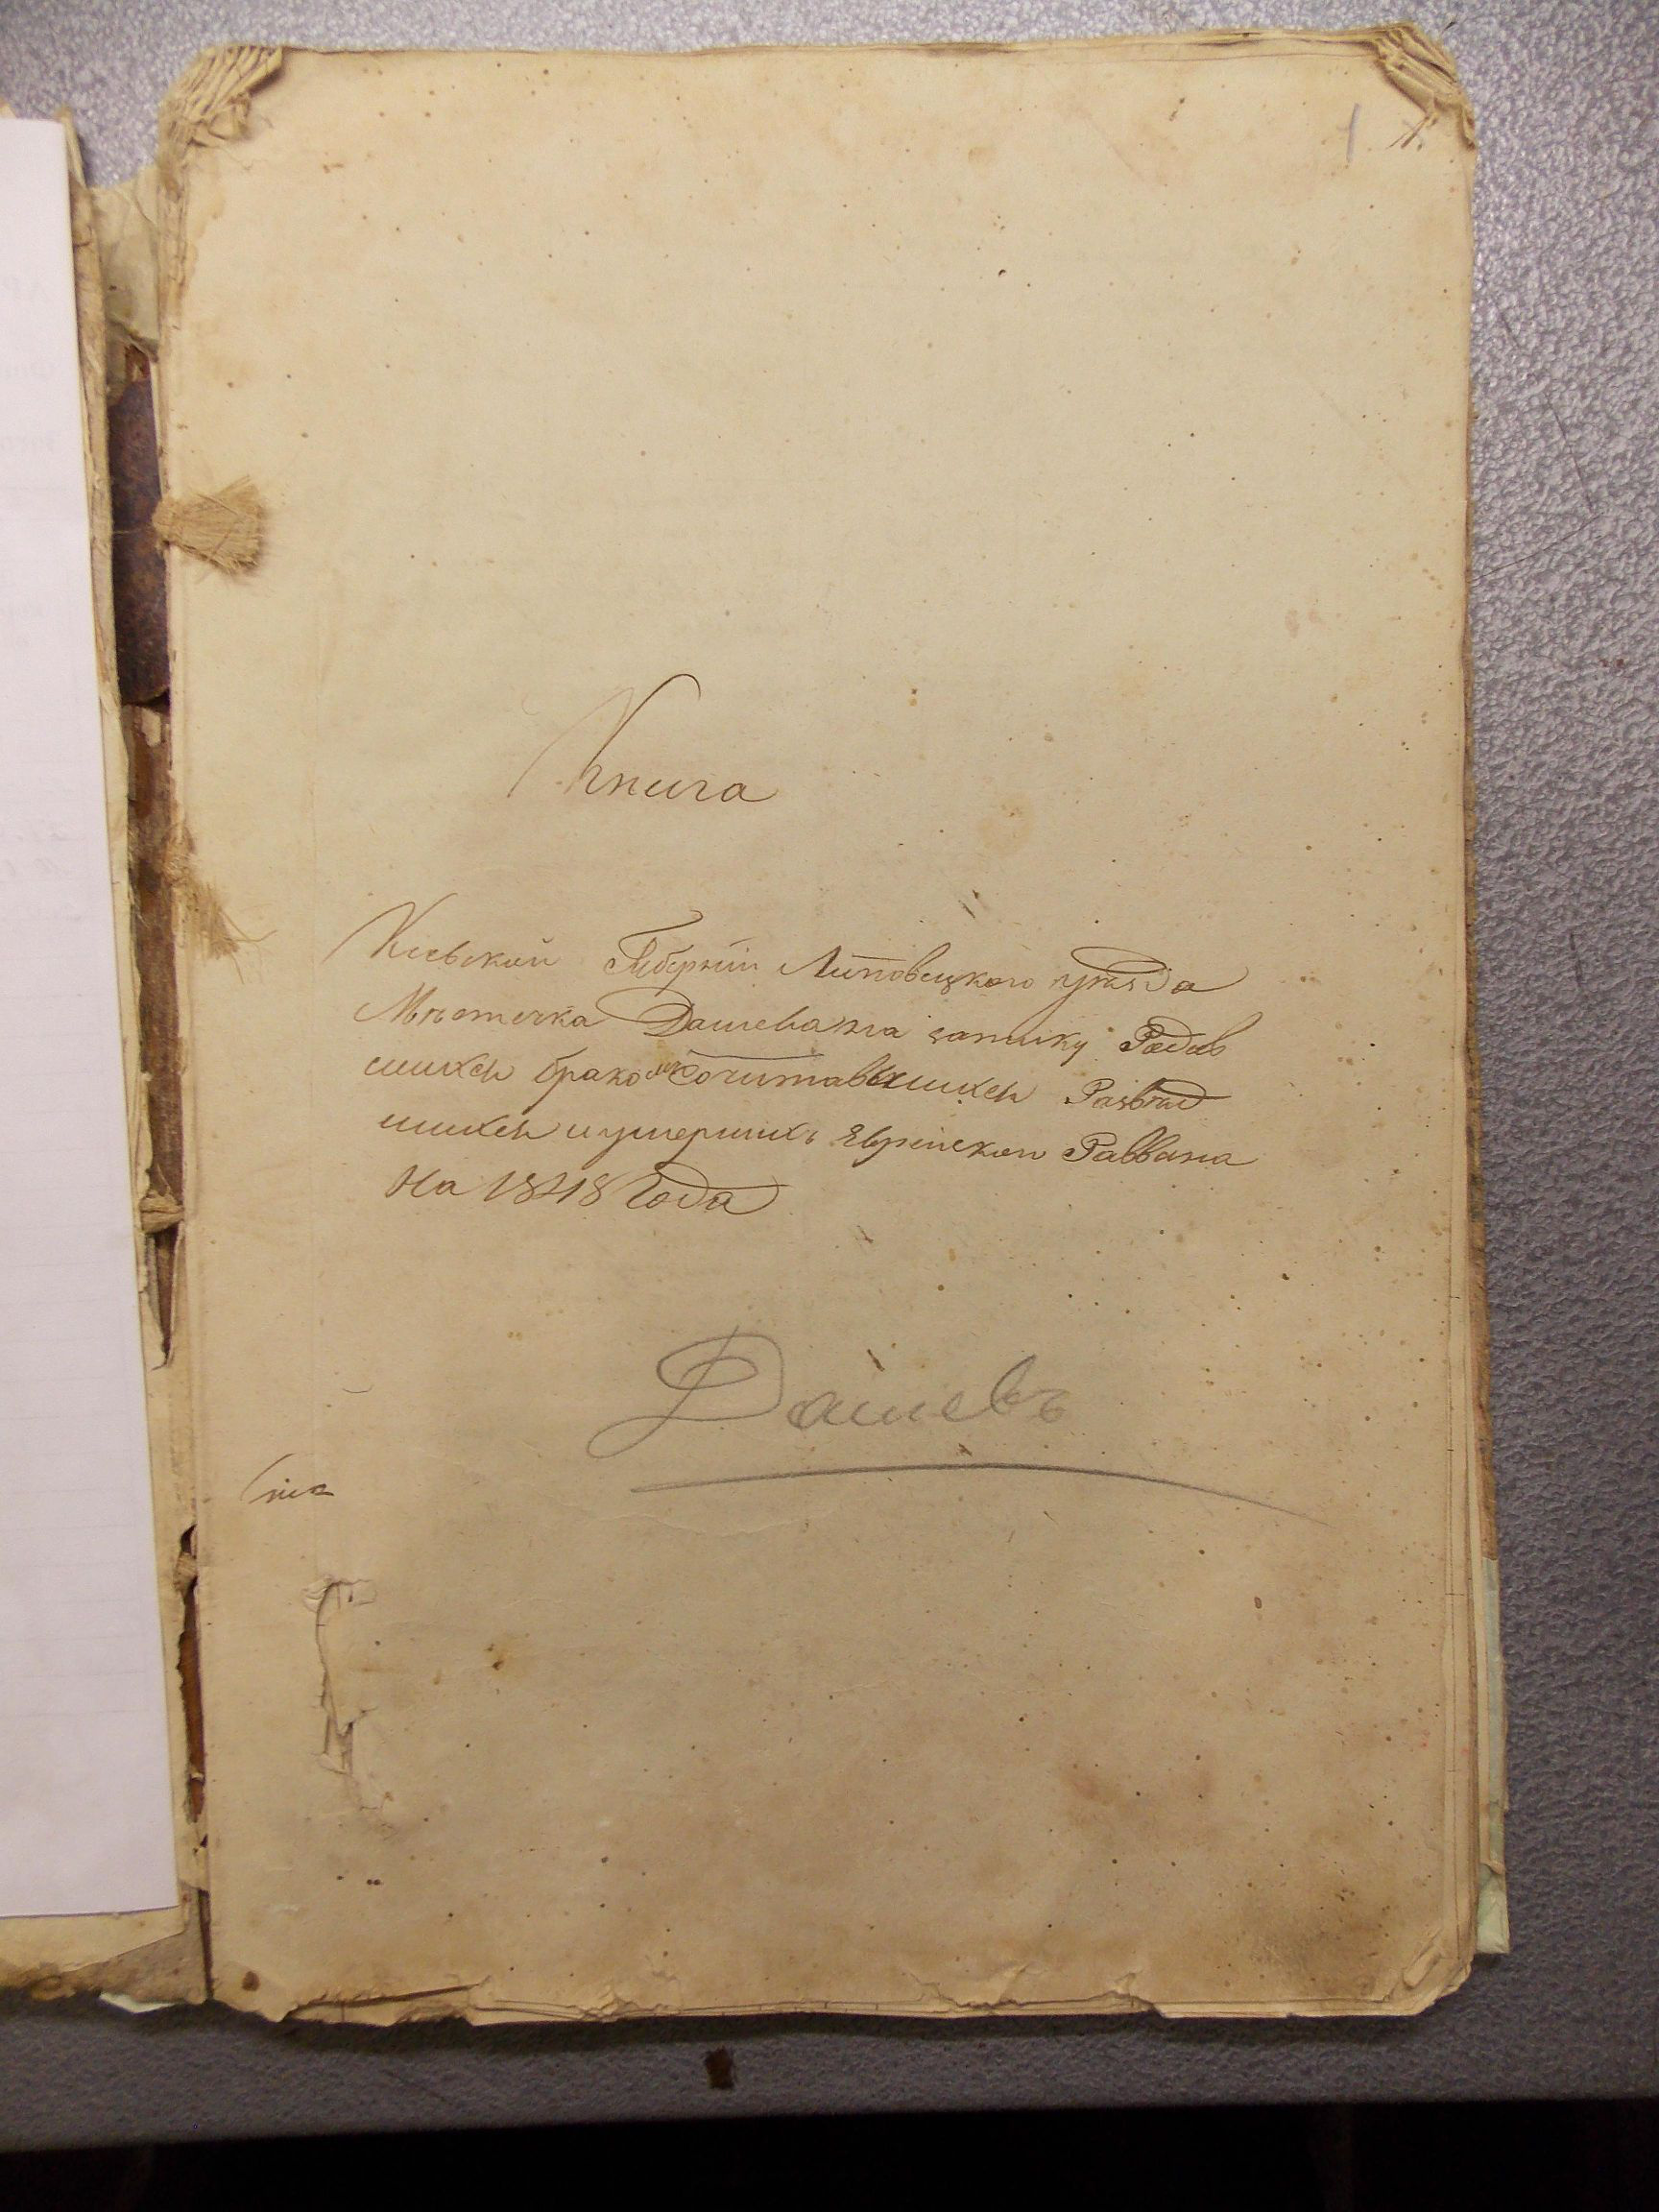 1 1.
Книга
Кіевской Губерніи Липовецкого уезда
Мѣстечка Дашева на записку Родив
шихся бракомъ Сочитавшихся Развод
шихся и умершихъ Еврейской Раввана
На 1848 Года
Дашевъ